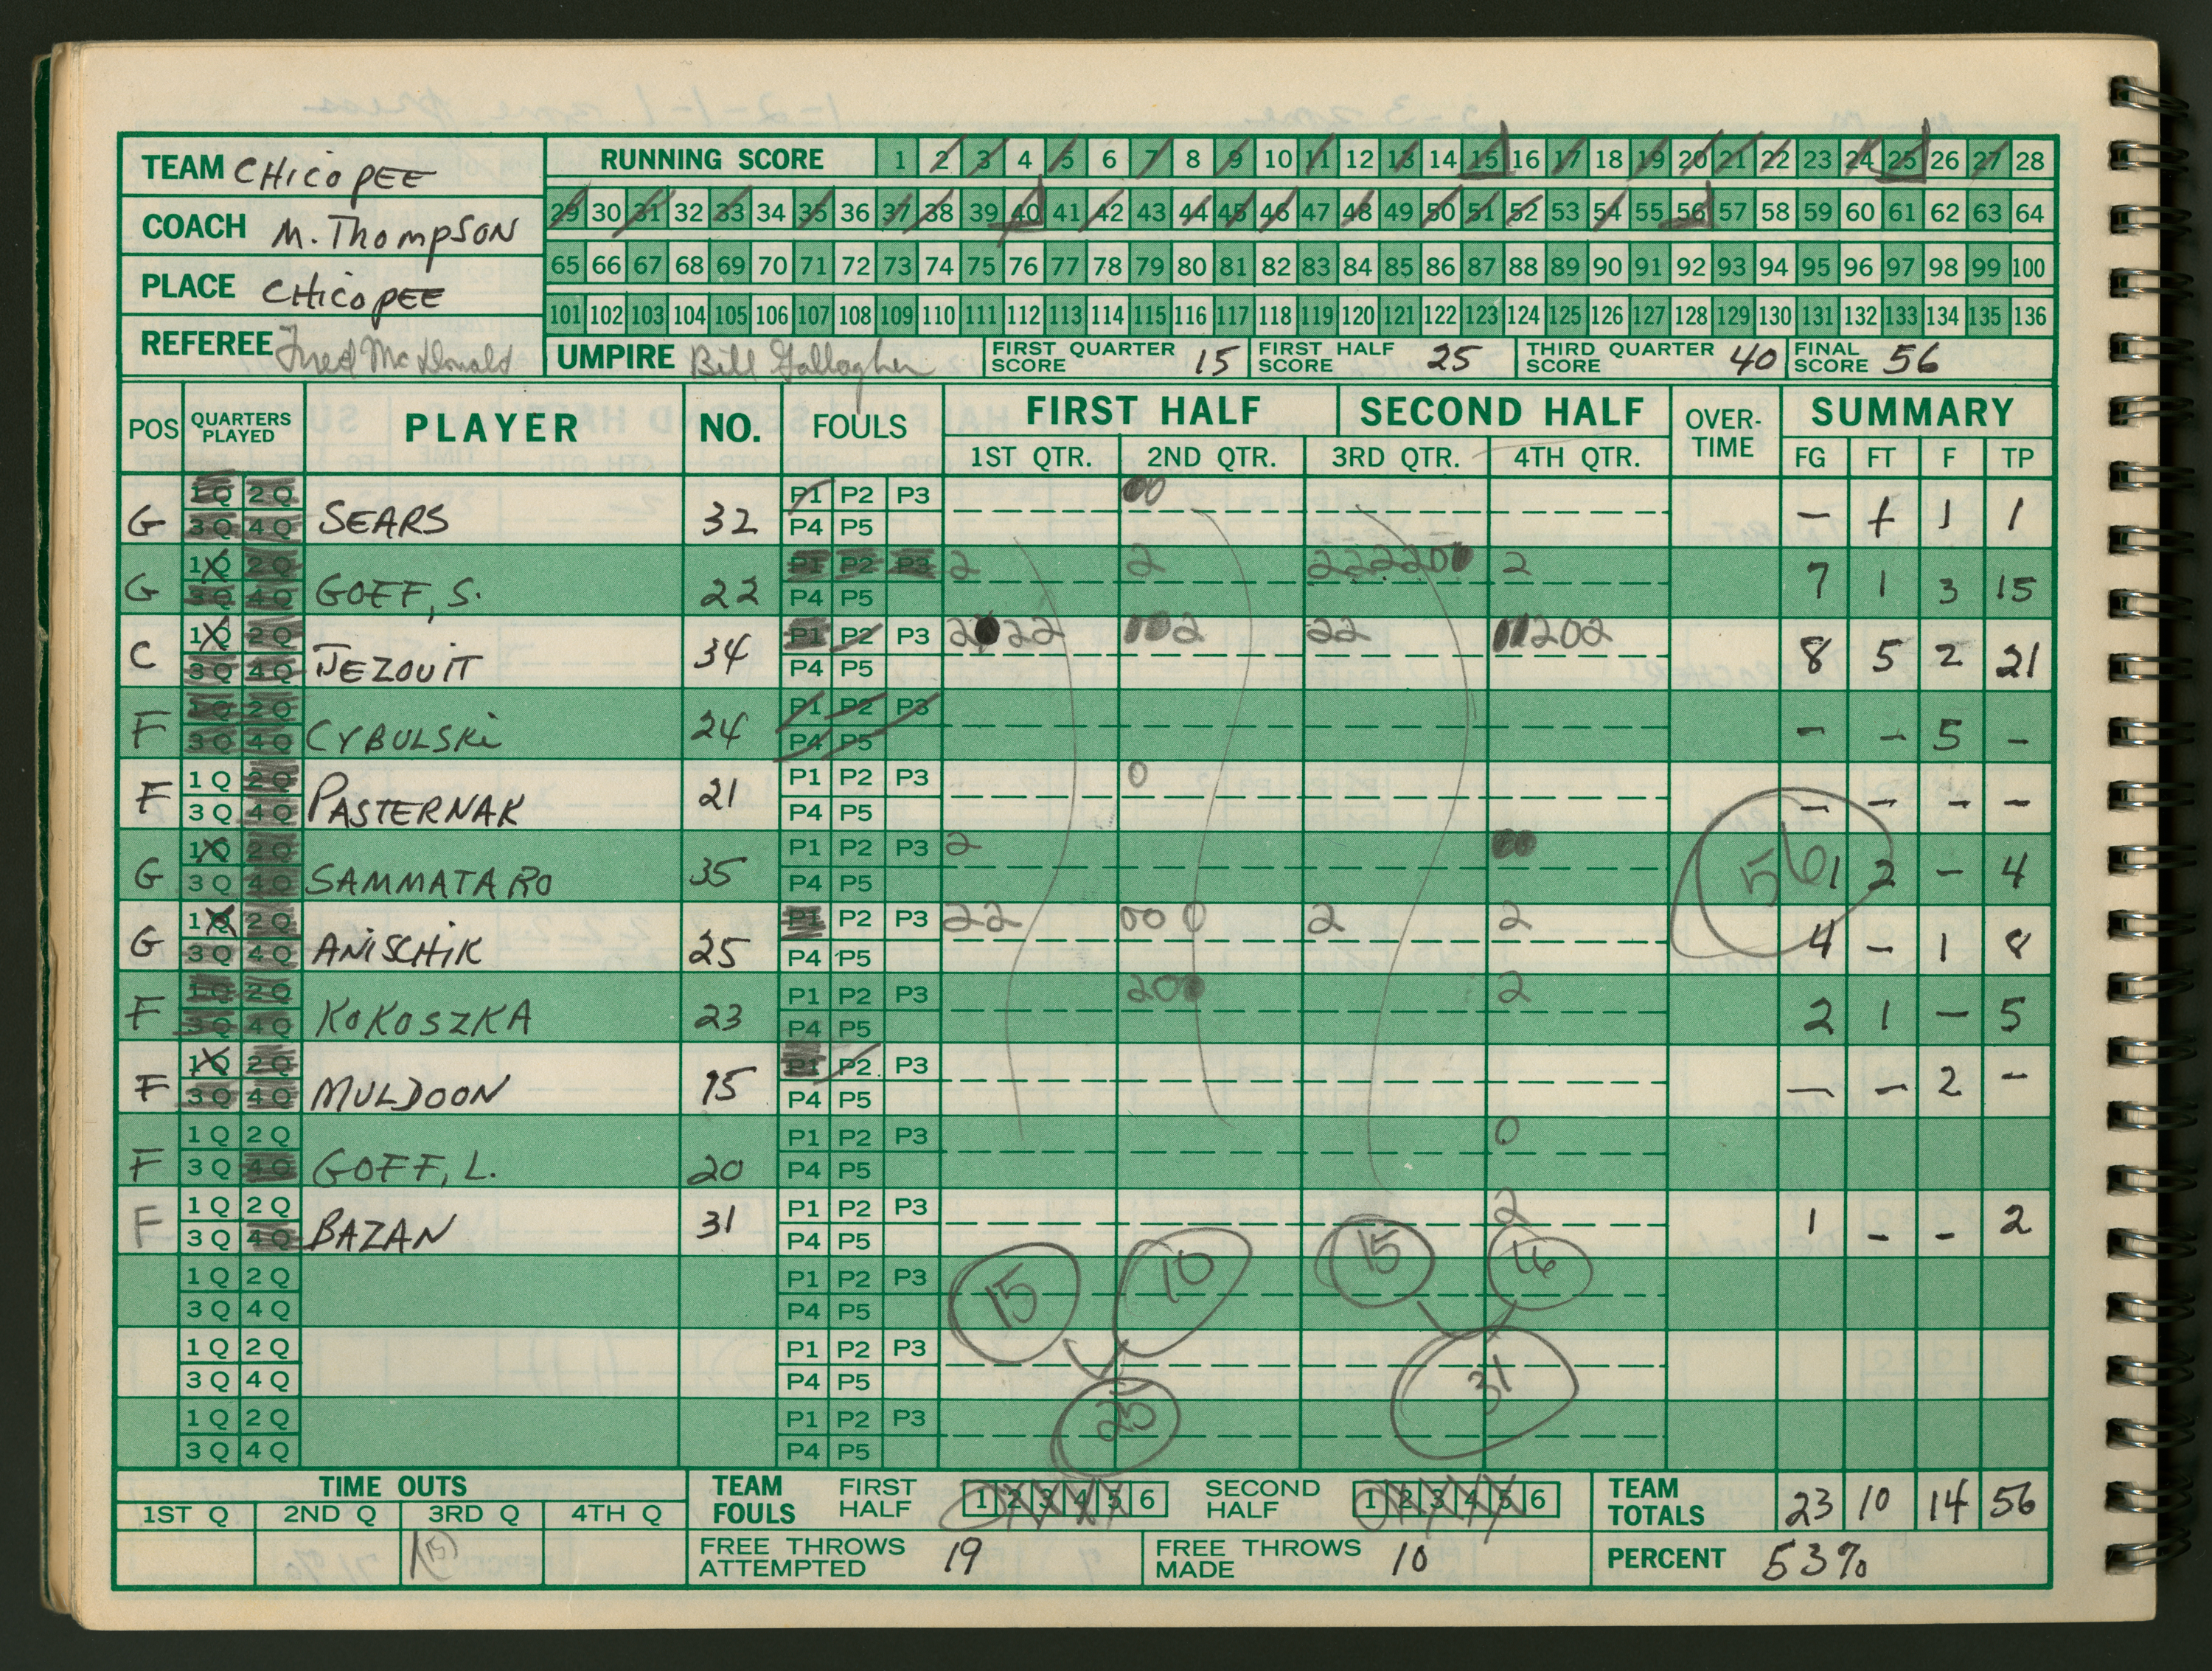 TEAM CHICOPEE
COACH M. THOMPSON
PLACE CHICOPEE
REFEREE Fred McDonald
RUNNING SCORE 1 2 3 4 5 6 7 8 9 10 11 12 13 14 15 16 17 18 19 20 21 22 23 24 25 26 27 28
29 30 31 32 33 34 35 36 37 38 39 40 41 42 43 44 45 46 47 48 49 50 51 52 53 54 55 56 57 58 59 60 61 62 63 64
65 66 67 68 69 70 71 72 73 74 75 76 77 78 79 80 81 82 83 84 85 86 87 88 89 90 91 92 93 94 95 96 97 98 99 100
101 102 103 104 105 106 107 108 109 110 111 112 113 114 115 116 117 118 119 120 121 122 123 124 125 126 127 128 129 130 131 132 133 134 135 136
UMPIRE Bill Gallagher FIRST QUARTER SCORE 15 FIRST HALF SCORE 25 THIRD QUARTER SCORE 40 FINAL SCORE 56
POS QUARTERS PLAYED PLAYER NO. FOULS FIRST HALF SECOND HALF OVER-TIME SUMMARY
1ST QTR. 2ND QTR. 3RD QTR. 4TH QTR. FG FT F TP
1Q 2Q P1 P2 P3 00
G 3Q 4Q SEARS 32 P4 P5 - 1 1 1
1Q 2Q P1 P2 P3 2 2 222200 2
G 3Q 4Q GOFF, S. 22 P4 P5 7 1 3 15
1Q 2Q P1 P2 P3 2022 002 22 00202
C 3Q 4Q JEZOUIT 34 P4 P5 8 5 2 21
1Q 2Q P1 P2 P3
F 3Q 4Q CYBULSKI 24 P4 P5 - - 5 -
1Q 2Q P1 P2 P3 0
F 3Q 4Q PASTERNAK 21 P4 P5 - - - -
1Q 2Q P1 P2 P3 2 00
G 3Q 4Q SAMMATARO 35 P4 P5 56 1 2 - 4
1Q 2Q P1 P2 P3 22 00 0 2 2
G 3Q 4Q ANISCHIK 25 P4 P5 4 - 1 8
1Q 2Q P1 P2 P3 200 2
F 3Q 4Q KOKOSZKA 23 P4 P5 2 1 - 5
1Q 2Q P1 P2 P3
F 3Q 4Q MULDOON 15 P4 P5 - - 2 -
1Q 2Q P1 P2 P3 0
F 3Q 4Q GOFF, L. 20 P4 P5
1Q 2Q P1 P2 P3 2
F 3Q 4Q BAZAN 31 P4 P5 1 - - 2
1Q 2Q P1 P2 P3 15 10 15 16
3Q 4Q P4 P5
1Q 2Q P1 P2 P3
3Q 4Q P4 P5 31
1Q 2Q P1 P2 P3 25
3Q 4Q P4 P5
TIME OUTS TEAM FOULS FIRST HALF 1 2 3 4 5 6 SECOND HALF 1 2 3 4 5 6 TEAM TOTALS 23 10 14 56
1ST Q 2ND Q 3RD Q 4TH Q
FREE THROWS ATTEMPTED 19 FREE THROWS MADE 10 PERCENT 53%